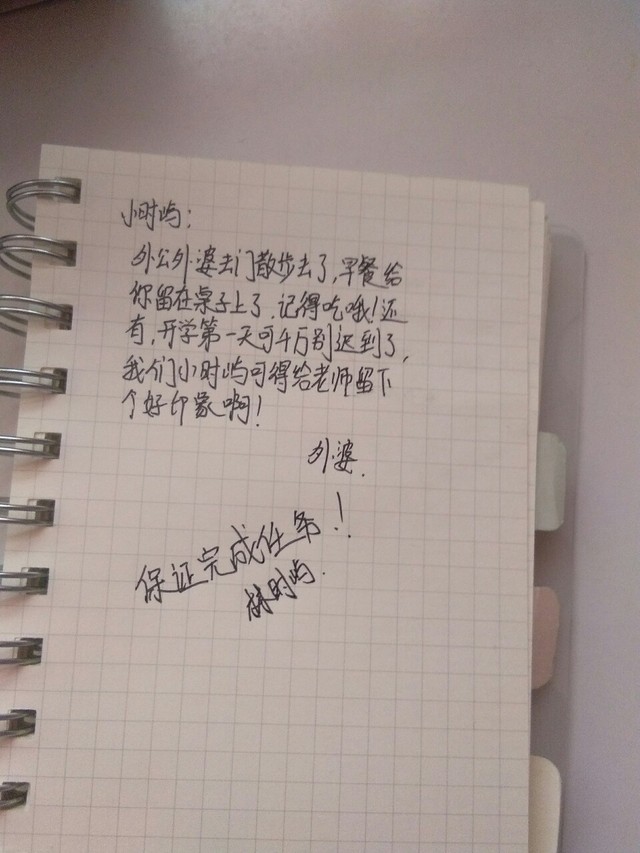 小时屿：
外公外婆去门散步去了，早餐给
你留在桌子上了，记得吃哦！还
有，开学第一天可千万别迟到了，
我们小时屿可得给老师留下
个好印象啊！
外婆.
保证完成任务！
林时屿.